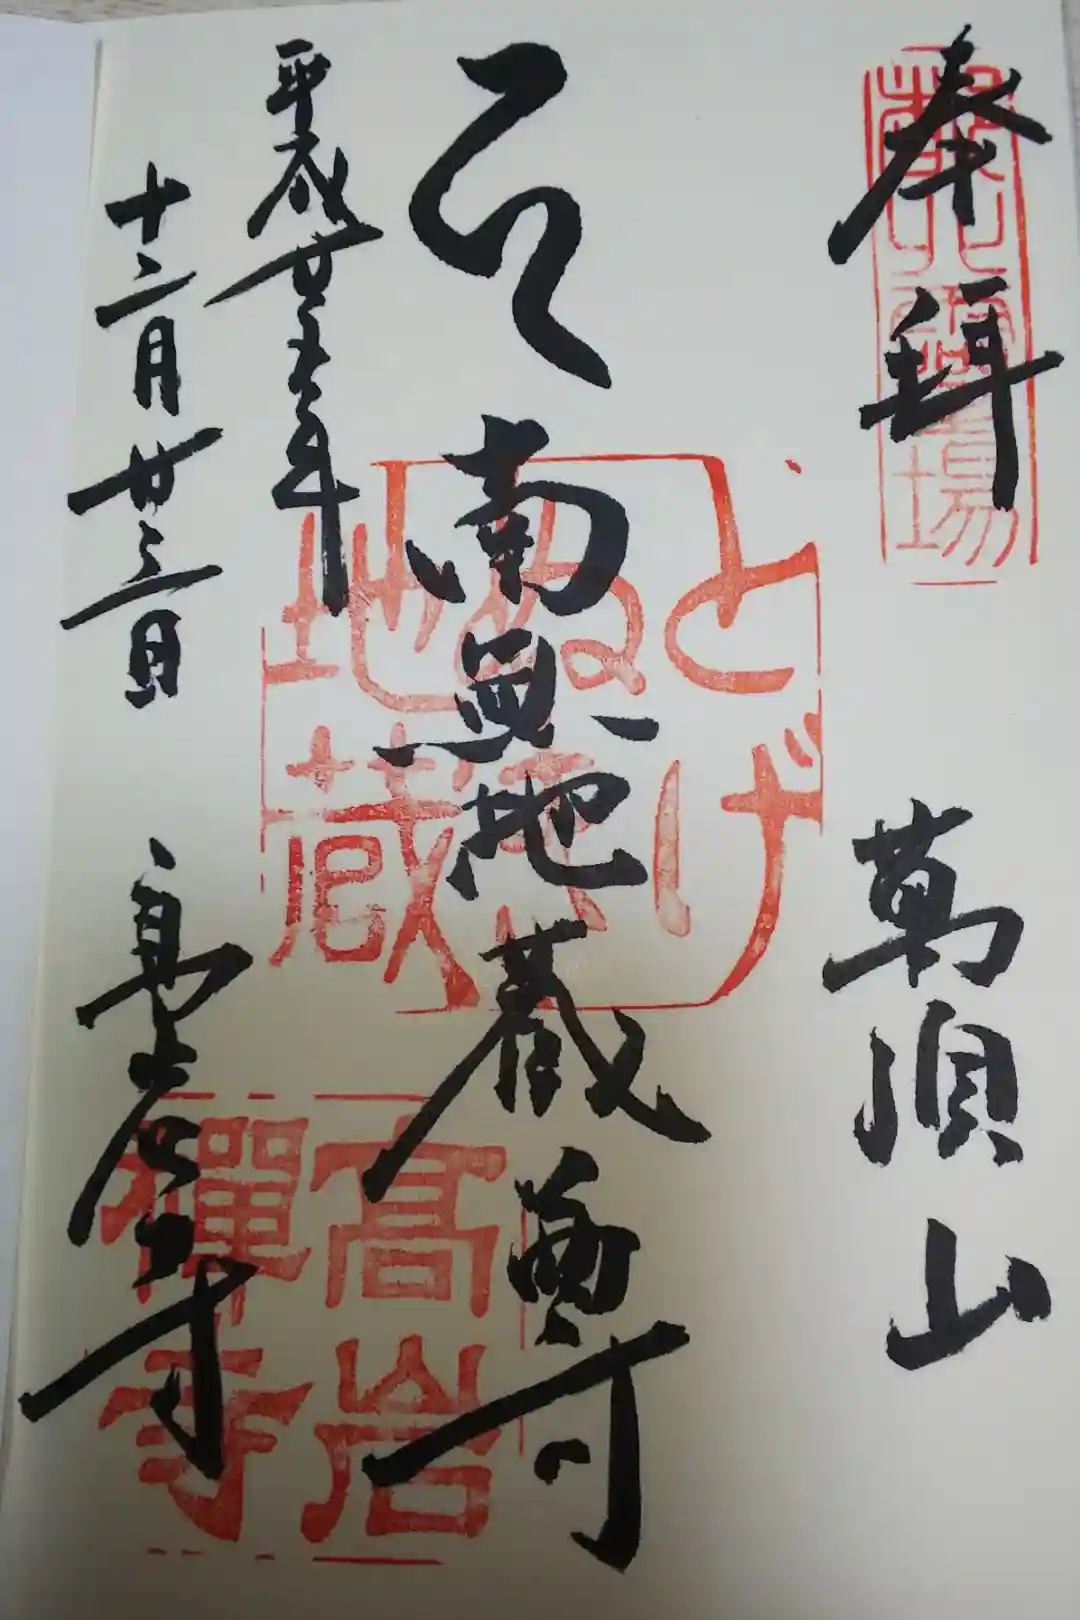 奉拝
萬頂山
南無地蔵尊
平成廿五年
十二月廿三日
高岩寺
霊場
とげ
ぬき
地蔵
高岩
禅寺